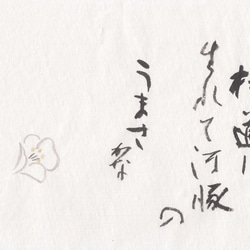 極道に
生れて河豚の
うまさかな